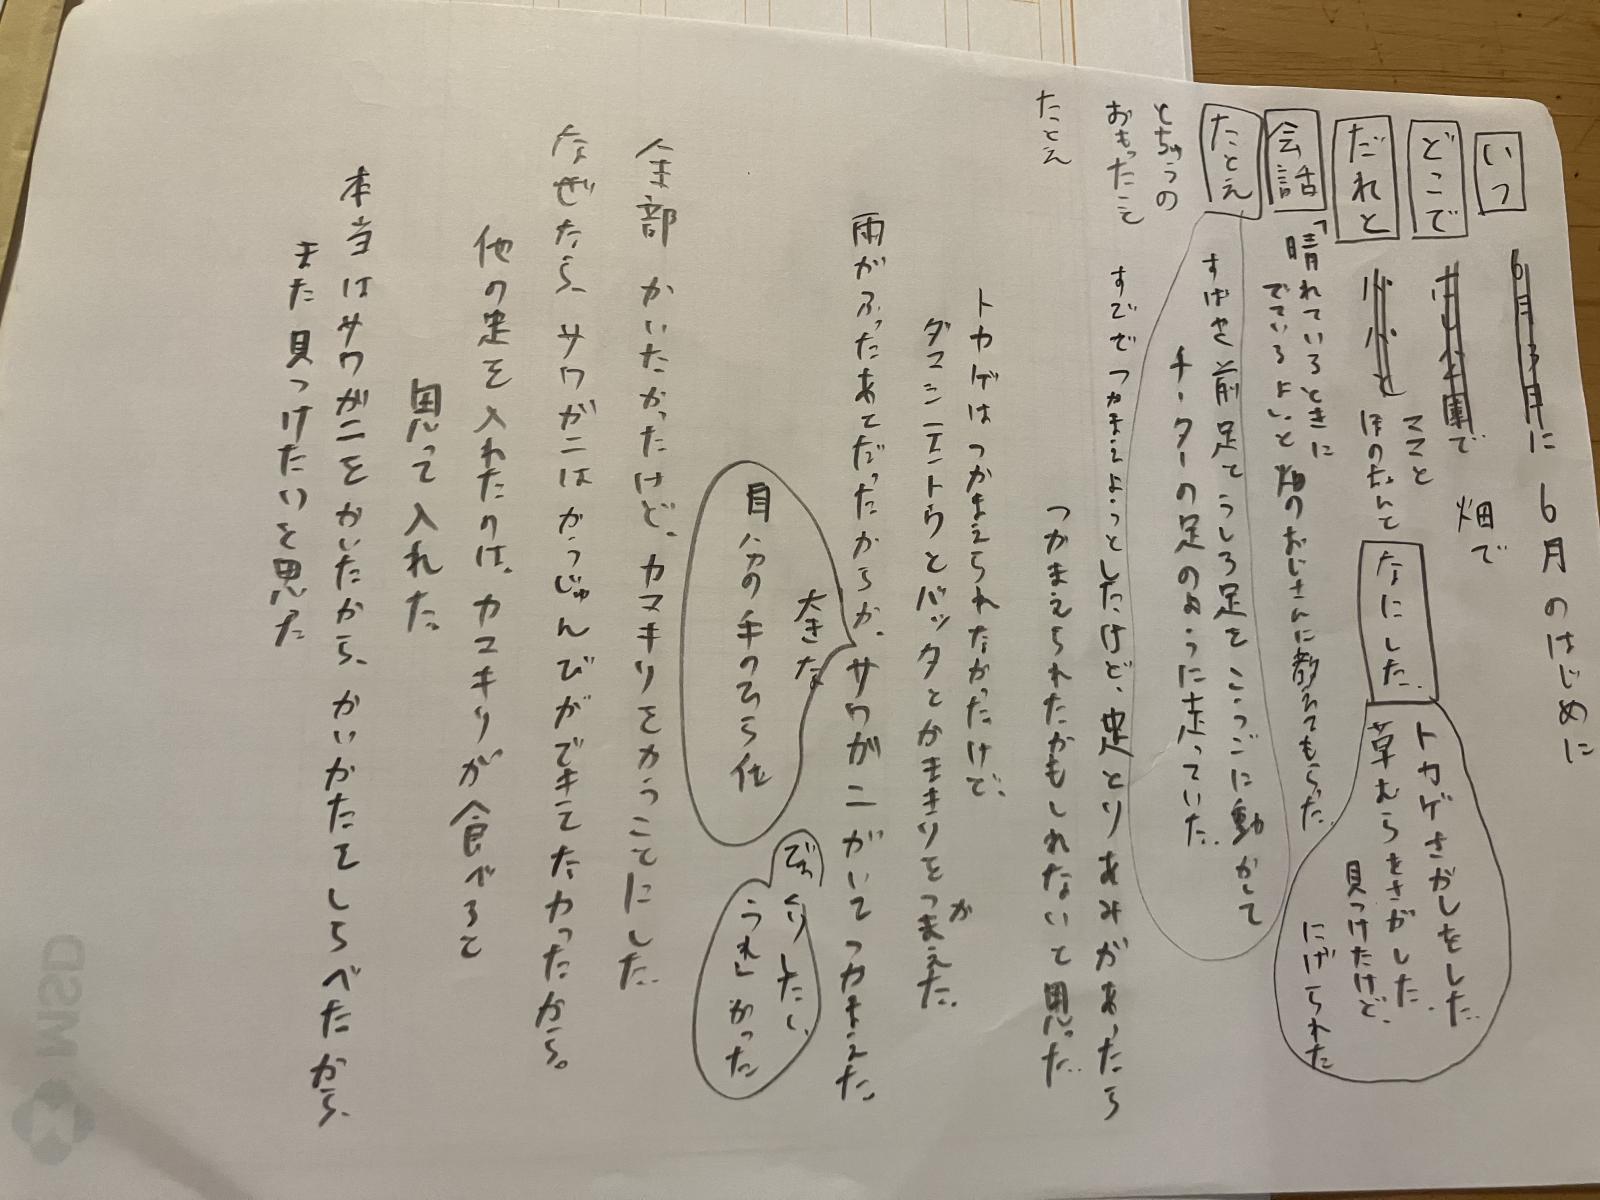 いつ
6月3日に 6月のはじめに
どこで
で 畑で
だれと
パパと ママと
ほのちゃんと
なにした
トカゲさがしをした。
草むらをさがした。
見つけたけど、
にげられた
会話
「晴れているときに
でているよ」と畑のおじさんに教えてもらった。
たとえ
すばやく前足とうしろ足をこうごに動かして
チーターの足のように走っていた。
とちゅうの
おもったこと
すででつかまえようとしたけど、虫とりあみがあったら
つかまえられたかもしれないと思った。
たとえ
トカゲはつかまえられなかったけど、
ダマシテントウとバッタとかまきりをつかまえた。
雨がふったあとだったからか、サワガニがいてつかまえた
大きな
自分の手のひら位
びっくりしたし、
うれしかった
全部かいたかったけど、カマキリをかうことにした。
なぜなら、サワガニはかうじゅんびができてなかったから。
他の虫を入れたのは、カマキリが食べると
思って入れた。
本当はサワガニをかいたから、かいかたをしらべたから、
また見つけたいと思った
MSD